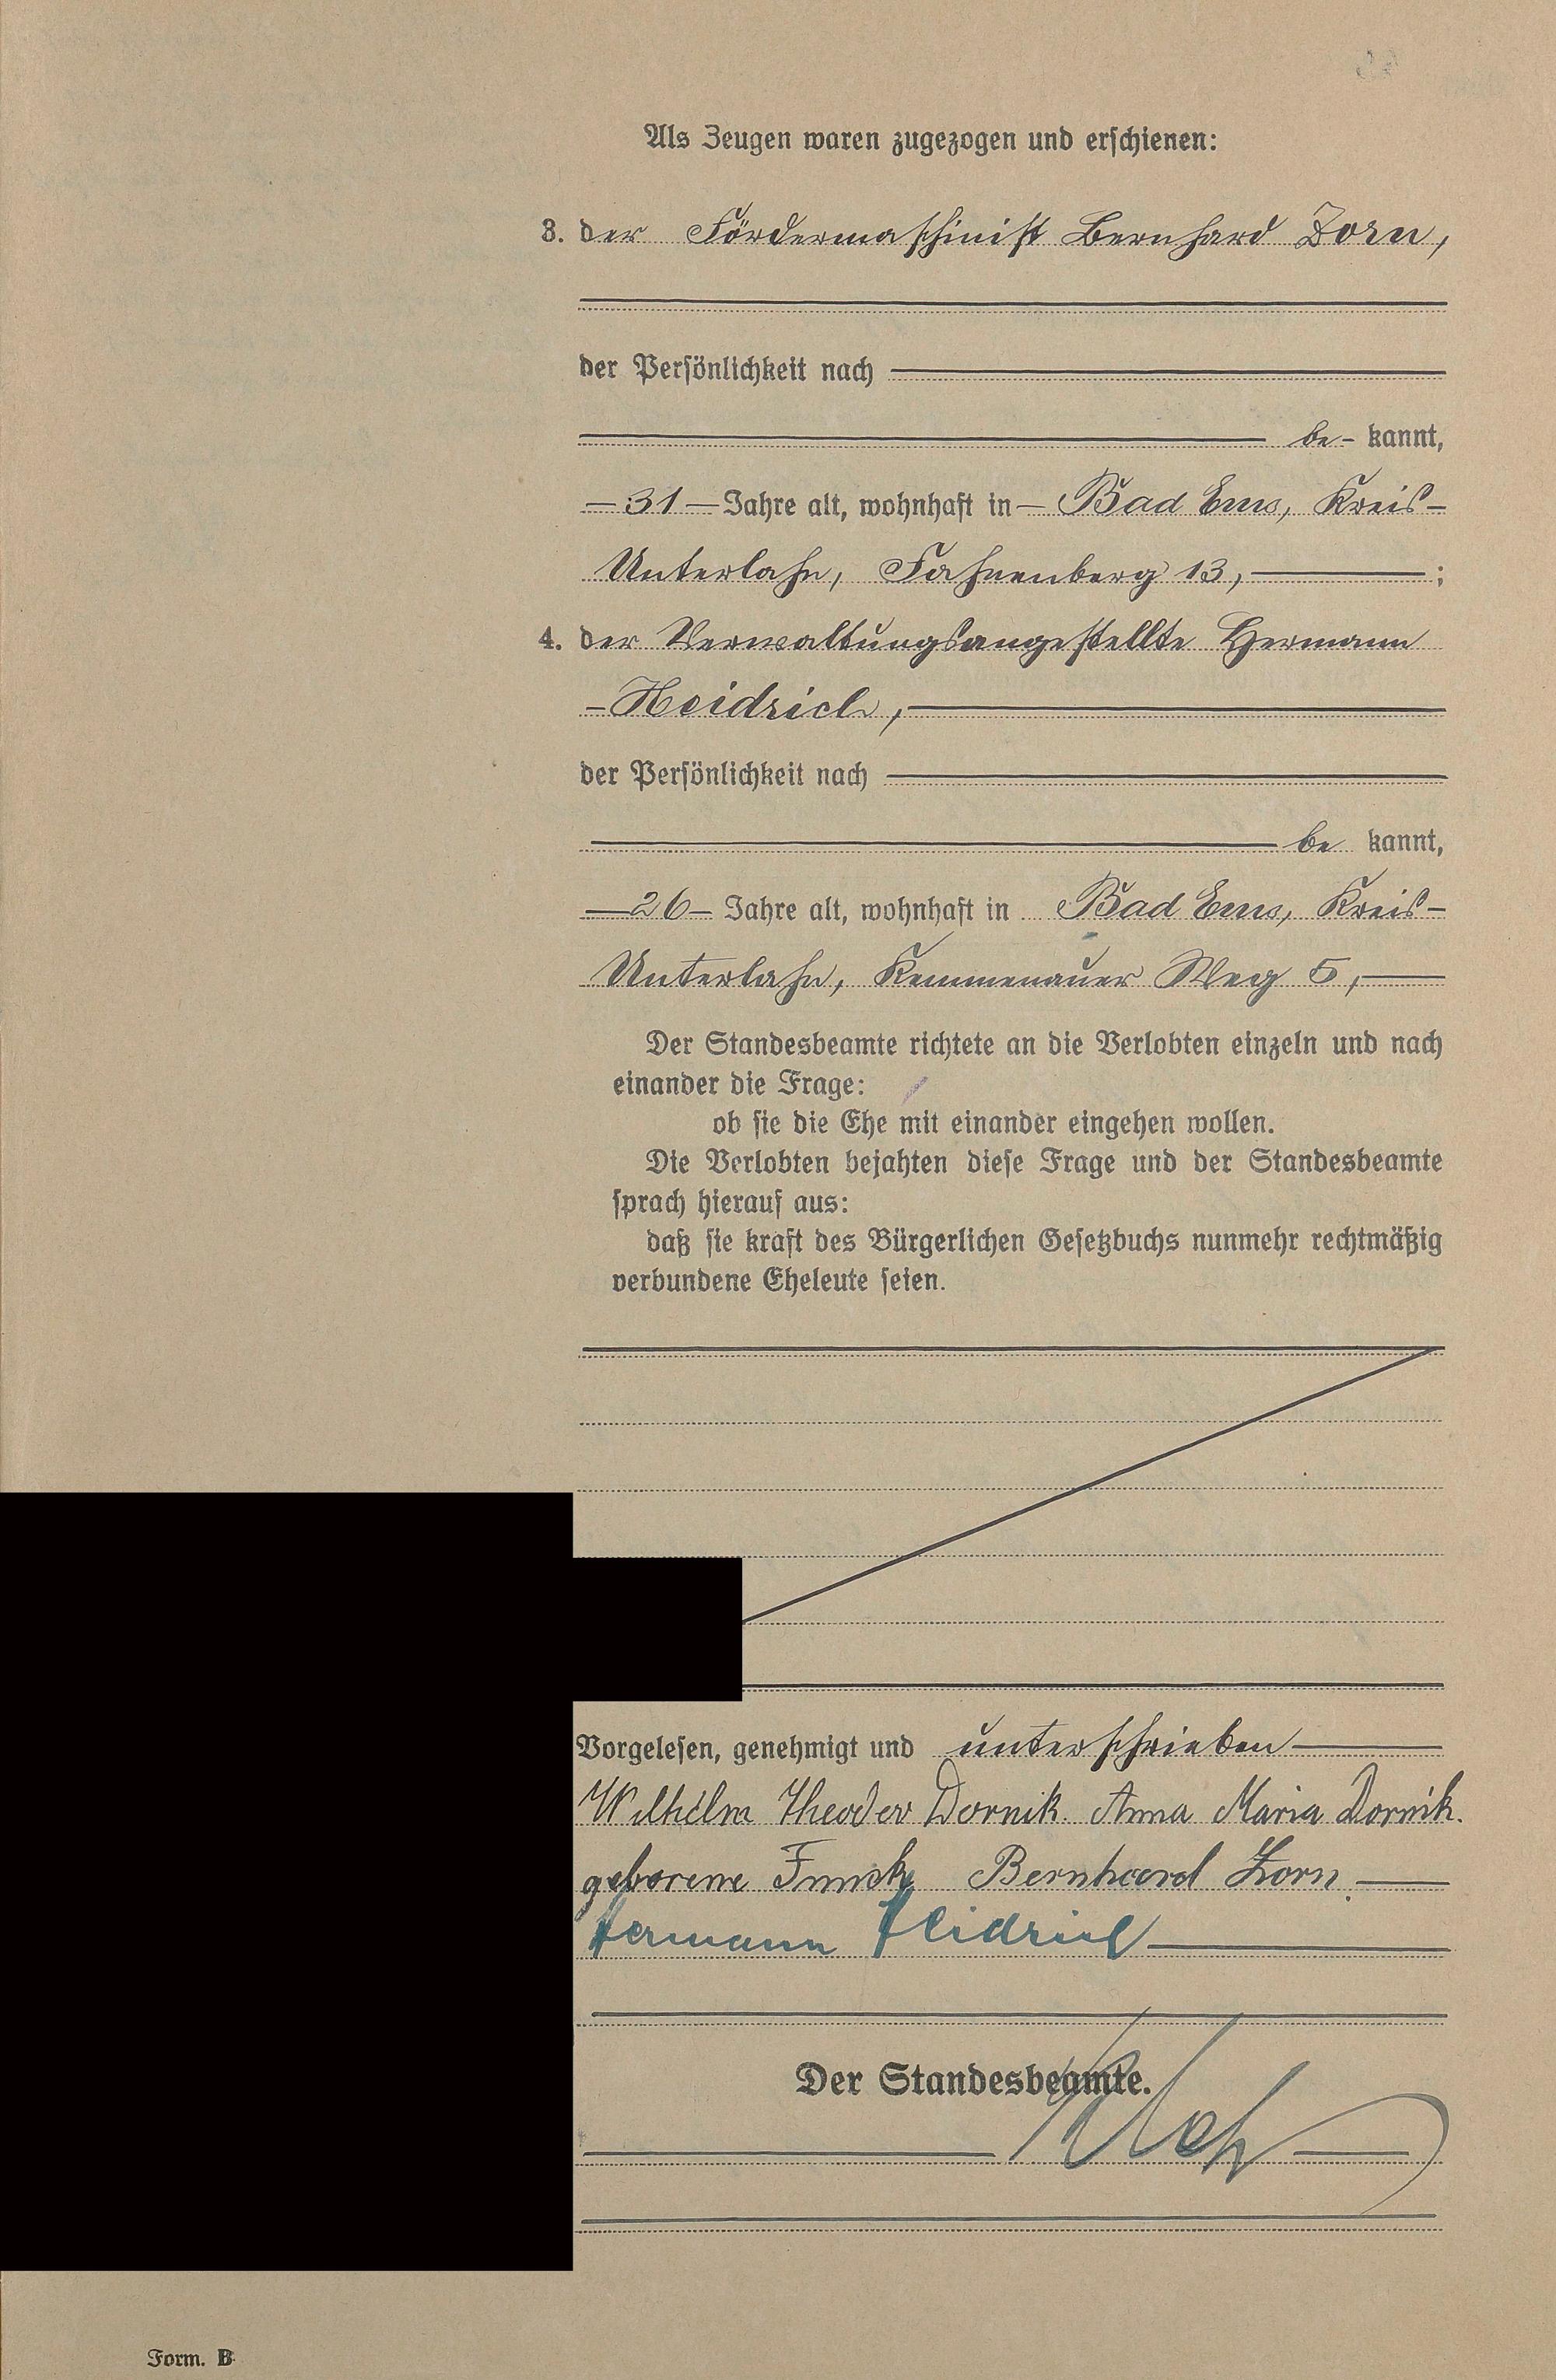 Als Zeugen waren zugezogen und erschienen:
3. der Fördermaschinist Bernhard Zorn,
der Persönlichkeit nach
be- kannt,
— 31 — Jahre alt, wohnhaft in — Bad Ems, Kreis —
Unterlahn, Fahnenberg 13, — ;
4. der Verwaltungsangestellte Hermann
— Heidrich, —
der Persönlichkeit nach
be kannt,
— 26 — Jahre alt, wohnhaft in Bad Ems, Kreis —
Unterlahn, Kemmenauer Weg 5, —
Der Standesbeamte richtete an die Verlobten einzeln und nach
einander die Frage:
ob sie die Ehe mit einander eingehen wollen.
Die Verlobten bejahten diese Frage und der Standesbeamte
sprach hierauf aus:
daß sie kraft des Bürgerlichen Gesetzbuchs nunmehr rechtmäßig
verbundene Eheleute seien.
Vorgelesen, genehmigt und unterschrieben —
Wilhelm Theodor Dornik. Anna Maria Dornik.
geborene Bernhard Zorn. —
Hermann Heidrich —
Der Standesbeamte.
Form. B